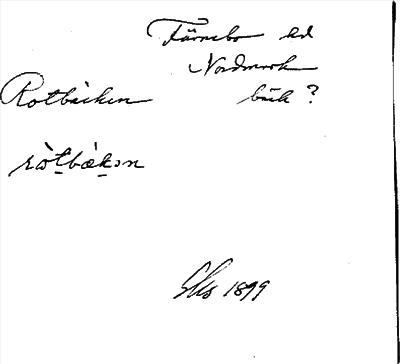 Färnebo hd
Nordmark
Rotbäcken bäck ?
ròt̠bæ̀k̠ən
1899